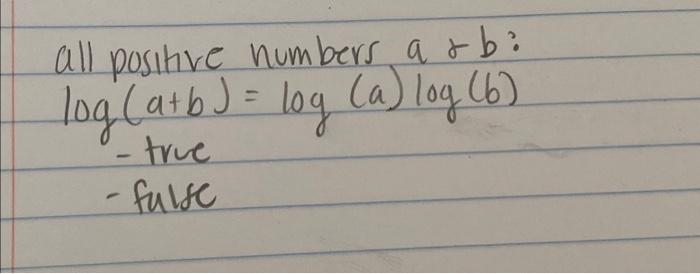 all positive numbers a & b:
log(a+b) = log(a) log(b)
- true
- false